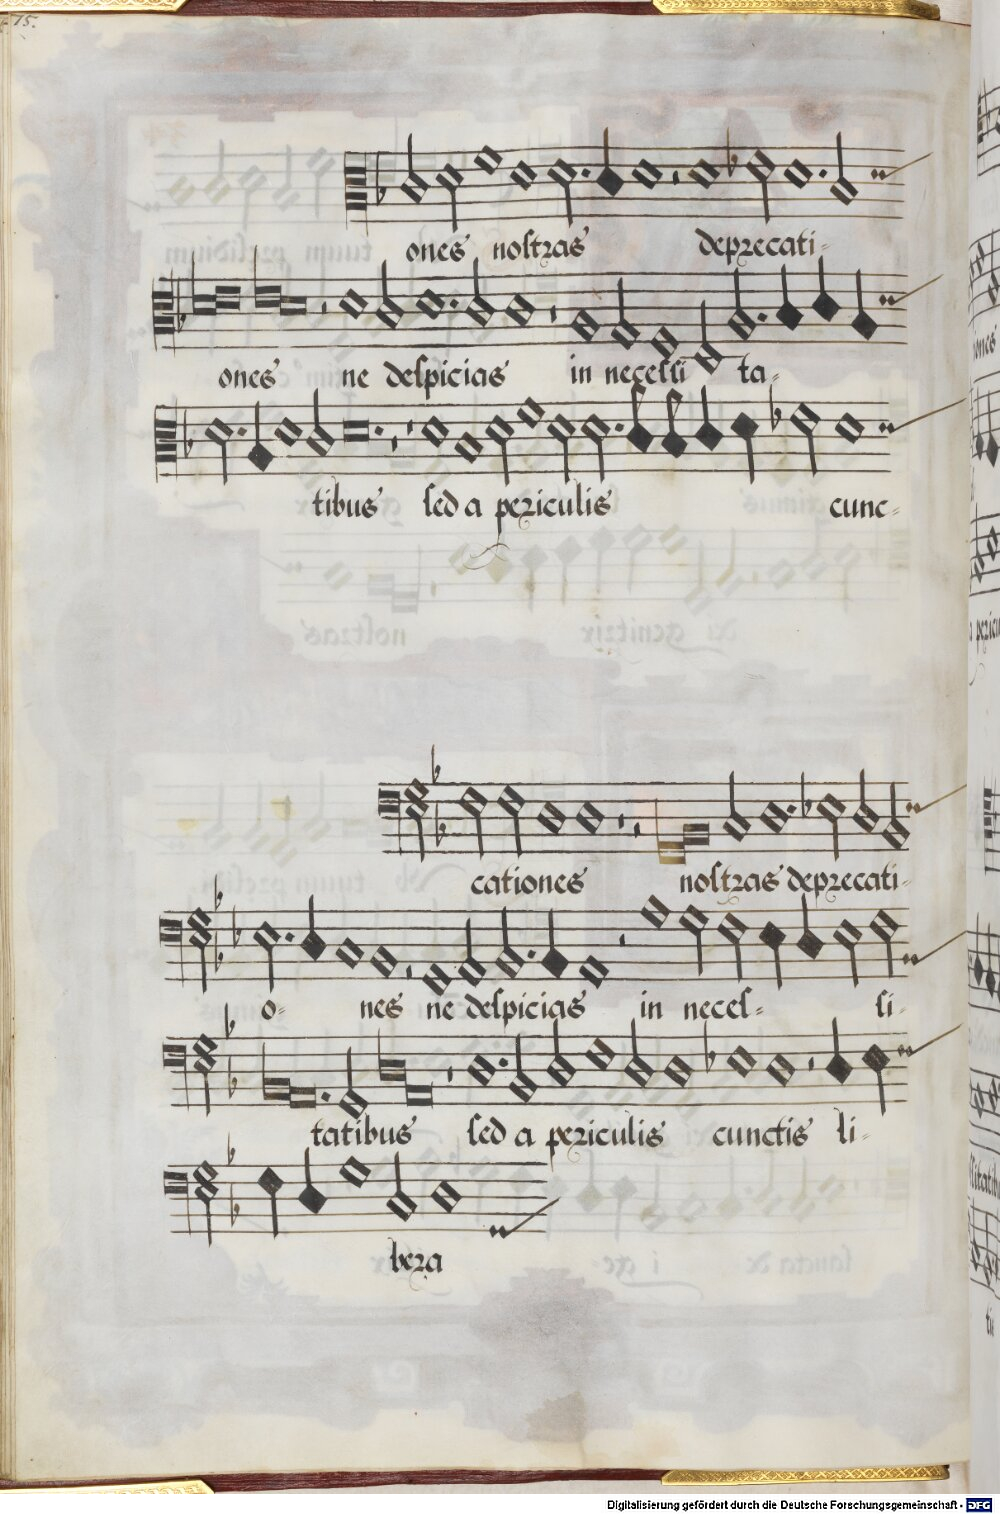 75.
ones noſtras deprecati-
ones ne deſpicias in neceſſi ta-
tibus ſed a periculis cunc-
cationes noſtras deprecati-
o- nes ne deſpicias in neceſ- ſi-
tatibus ſed a periculis cunctis li-
bera
Digitalisierung gefördert durch die Deutsche Forschungsgemeinschaft - DFG